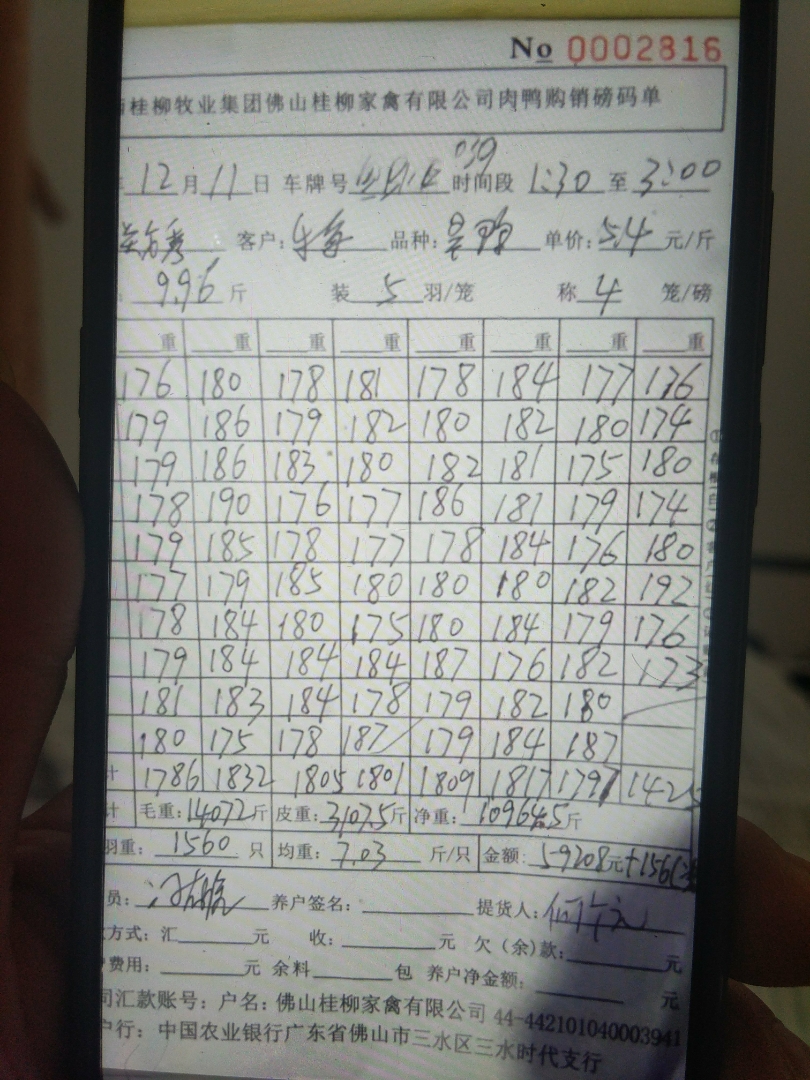 No 0002816
桂柳牧业集团佛山桂柳家禽有限公司肉鸭购销磅码单
12月11日 车牌号 039 时间段 1:30 至 3:00
客户: 品种: 单价: 5.4 元/斤
9.96 斤 装 5 羽/笼 称 4 笼/磅
重 重 重 重 重 重 重 重
176 180 178 181 178 184 177 176
179 186 179 182 180 182 180 174
179 186 183 180 182 181 175 180
178 190 176 177 186 181 179 174
179 185 178 177 178 184 176 180
177 179 185 180 180 180 182 192
178 184 180 175 180 184 179 176
179 184 184 184 187 176 182 173
181 183 184 178 179 182 180
180 175 178 187 179 184 187
计 1786 1832 1805 1801 1809 1817 1797 1425
计 毛重: 14072 斤 皮重: 3107.5 斤 净重: 10964.5 斤
羽重: 1560 只 均重: 7.03 斤/只 金额: 59208元+156
员: 养户签名: 提货人:
方式: 汇 元 收: 元 欠(余)款: 元
费用: 元 余料 包 养户净金额: 元
司汇款账号: 户名: 佛山桂柳家禽有限公司 44-442101040003941
户行: 中国农业银行广东省佛山市三水区三水时代支行